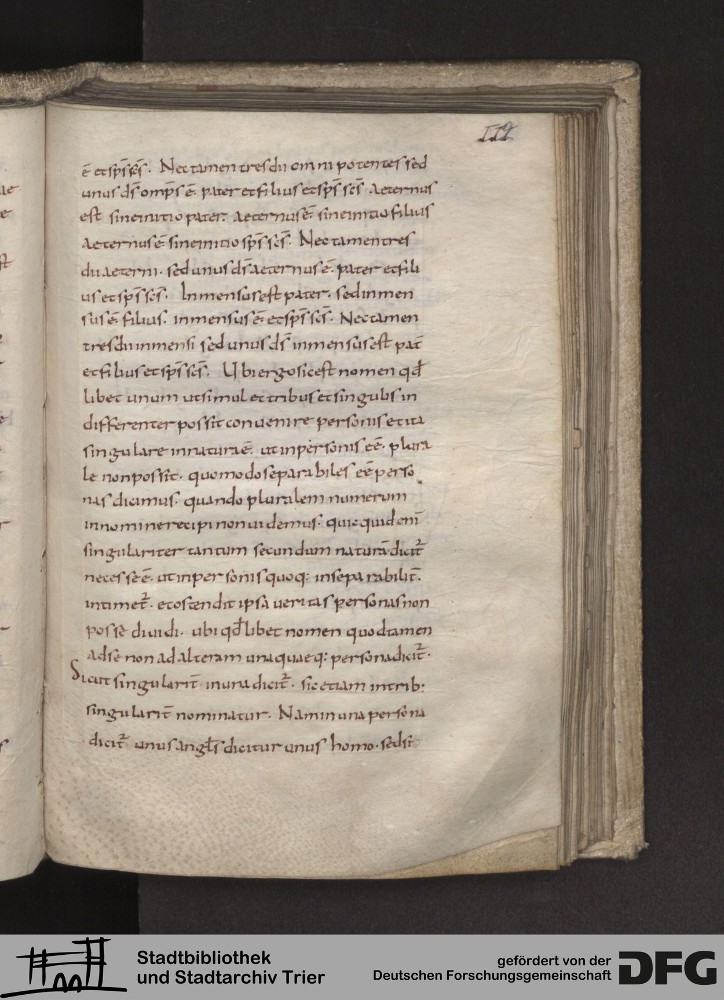 112
ē et sp̄s sc̄s. Nec tamen tres dii omnipotentes sed
unus ds̄ omp̄s ē. pater et filius et sp̄s sc̄s. Aeternus
est sine initio pater. aeternus ē sine initio filius
aeternus ē sine initio sp̄s sc̄s. Nec tamen tres
dii aeterni. sed unus ds̄ aeternus ē. pater et fili
us et sp̄s sc̄s. Inmensus est pater. sed inmen
sus ē filius. inmensus ē et sp̄s sc̄s. Nec tamen
tres dii inmensi sed unus ds̄ inmensus est pat̄
et filius et sp̄s sc̄s. Ubi ergo sic est nomen qđ
libet unum ut simul et tribus et singulis in
differenter possit convenire personis et ita
singulare in natura ē. ut in personis eē. plura
le non possit. quomodo separabiles eē perso
nas dicimus. quando pluralem numerum
in nomine recipi non uidemus. quicquid enī
singulariter tantum secundum naturā dicit᷑
necesse ē. ut in personis quoq; inseparabilit̄.
intimet᷑. et ostendit ipsa ueritas personas non
posse diuidi. ubi qđlibet nomen quod tamen
ad se non ad alteram unaquaeq; persona dicit᷑.
Sicut singularit̄ in una dicit᷑. sic etiam in trib;
singularit̄ nominatur. Nam in una persona
dicit᷑ unus angl̄s dicitur unus homo. sed si
Stadtbibliothek
und Stadtarchiv Trier
gefördert von der
Deutschen Forschungsgemeinschaft
DFG